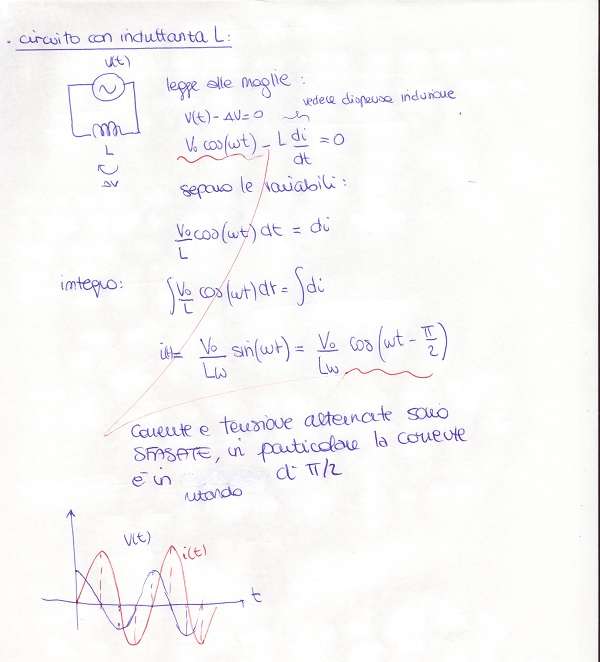 . circuito con induttanza L:
V(t)
L
ΔV
legge alle maglie:
V(t) - ΔV = 0
vedere dispensa induzione
V₀ cos(ωt) - L di/dt = 0
separo le variabili:
V₀/L cos(ωt) dt = di
integro:
∫ V₀/L cos(ωt) dt = ∫ di
i(t) = V₀/Lω sin(ωt) = V₀/Lω cos(ωt - π/2)
Corrente e tensione alternate sono
SFASATE, in particolare la corrente
è in ritardo di π/2
V(t)
i(t)
t